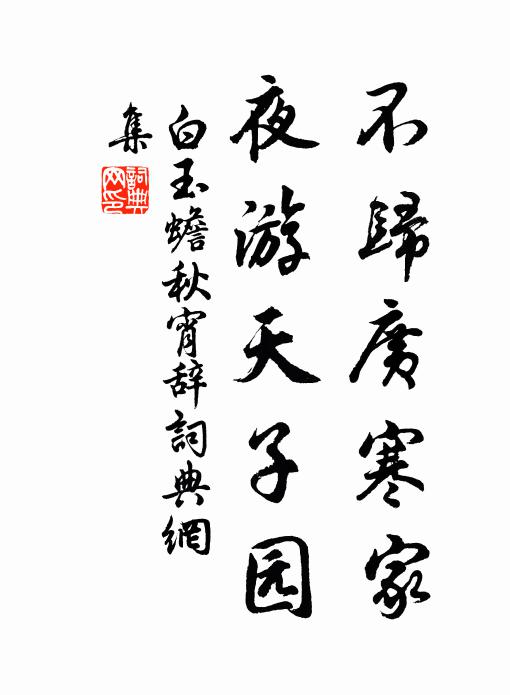 不歸廣寒家
夜游天子园
白玉蟾秋宵辞詞典網
集
詞典
网印